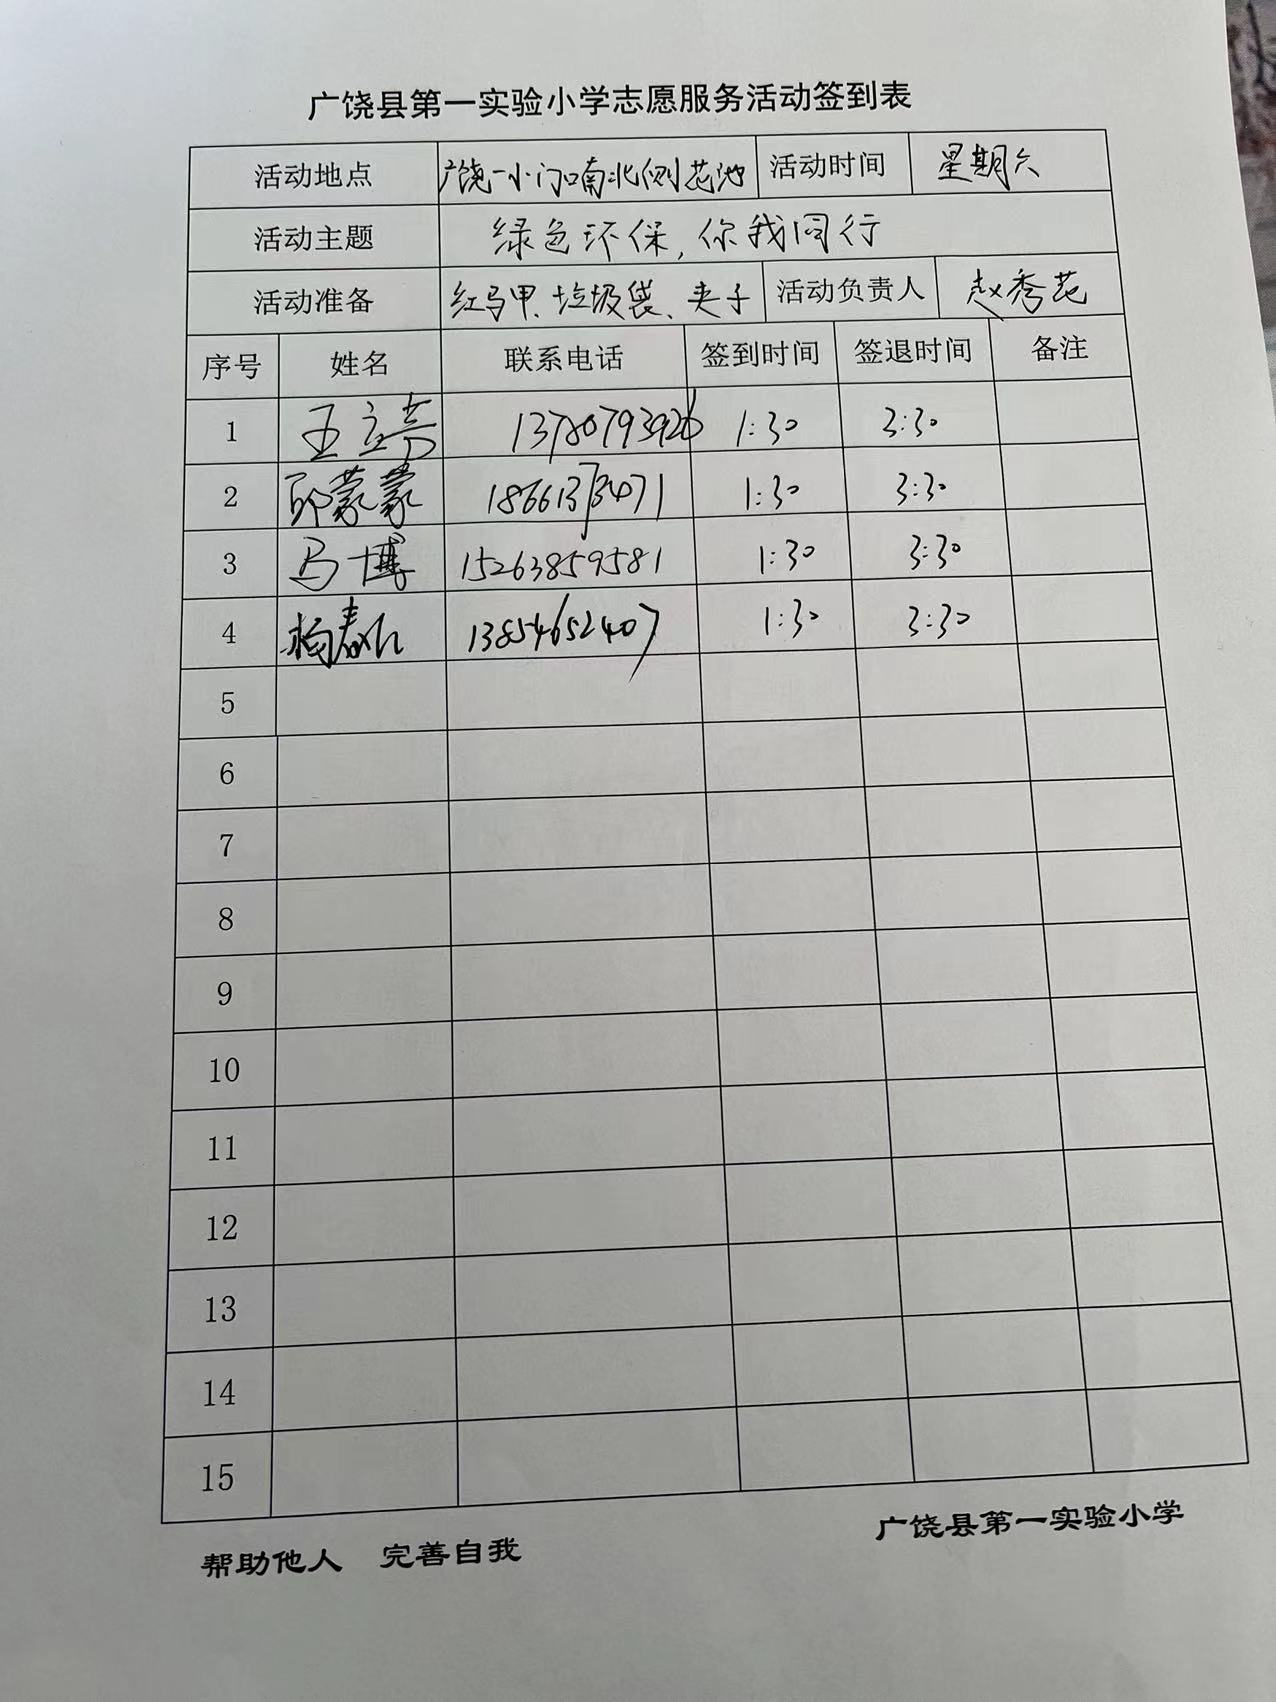 广饶县第一实验小学志愿服务活动签到表
活动地点 广饶一小门口南北侧花池 活动时间 星期六
活动主题 绿色环保,你我同行
活动准备 红马甲、垃圾袋、夹子 活动负责人 赵秀花
序号 姓名 联系电话 签到时间 签退时间 备注
1 王立 13780793926 1:30 3:30
2 邱蒙蒙 18661373471 1:30 3:30
3 马博 15263859581 1:30 3:30
4 杨春 13854652407 1:30 3:30
5
6
7
8
9
10
11
12
13
14
15
帮助他人 完善自我 广饶县第一实验小学